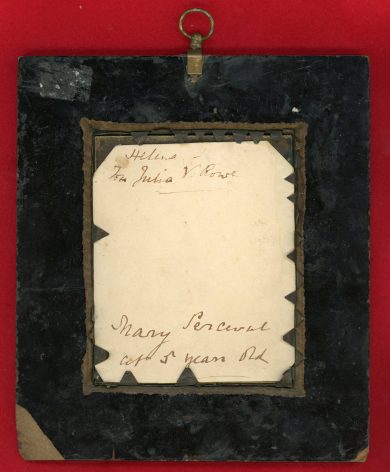 Helena -
from Julia V. Rowe
Mary Perceval
at 5 years old